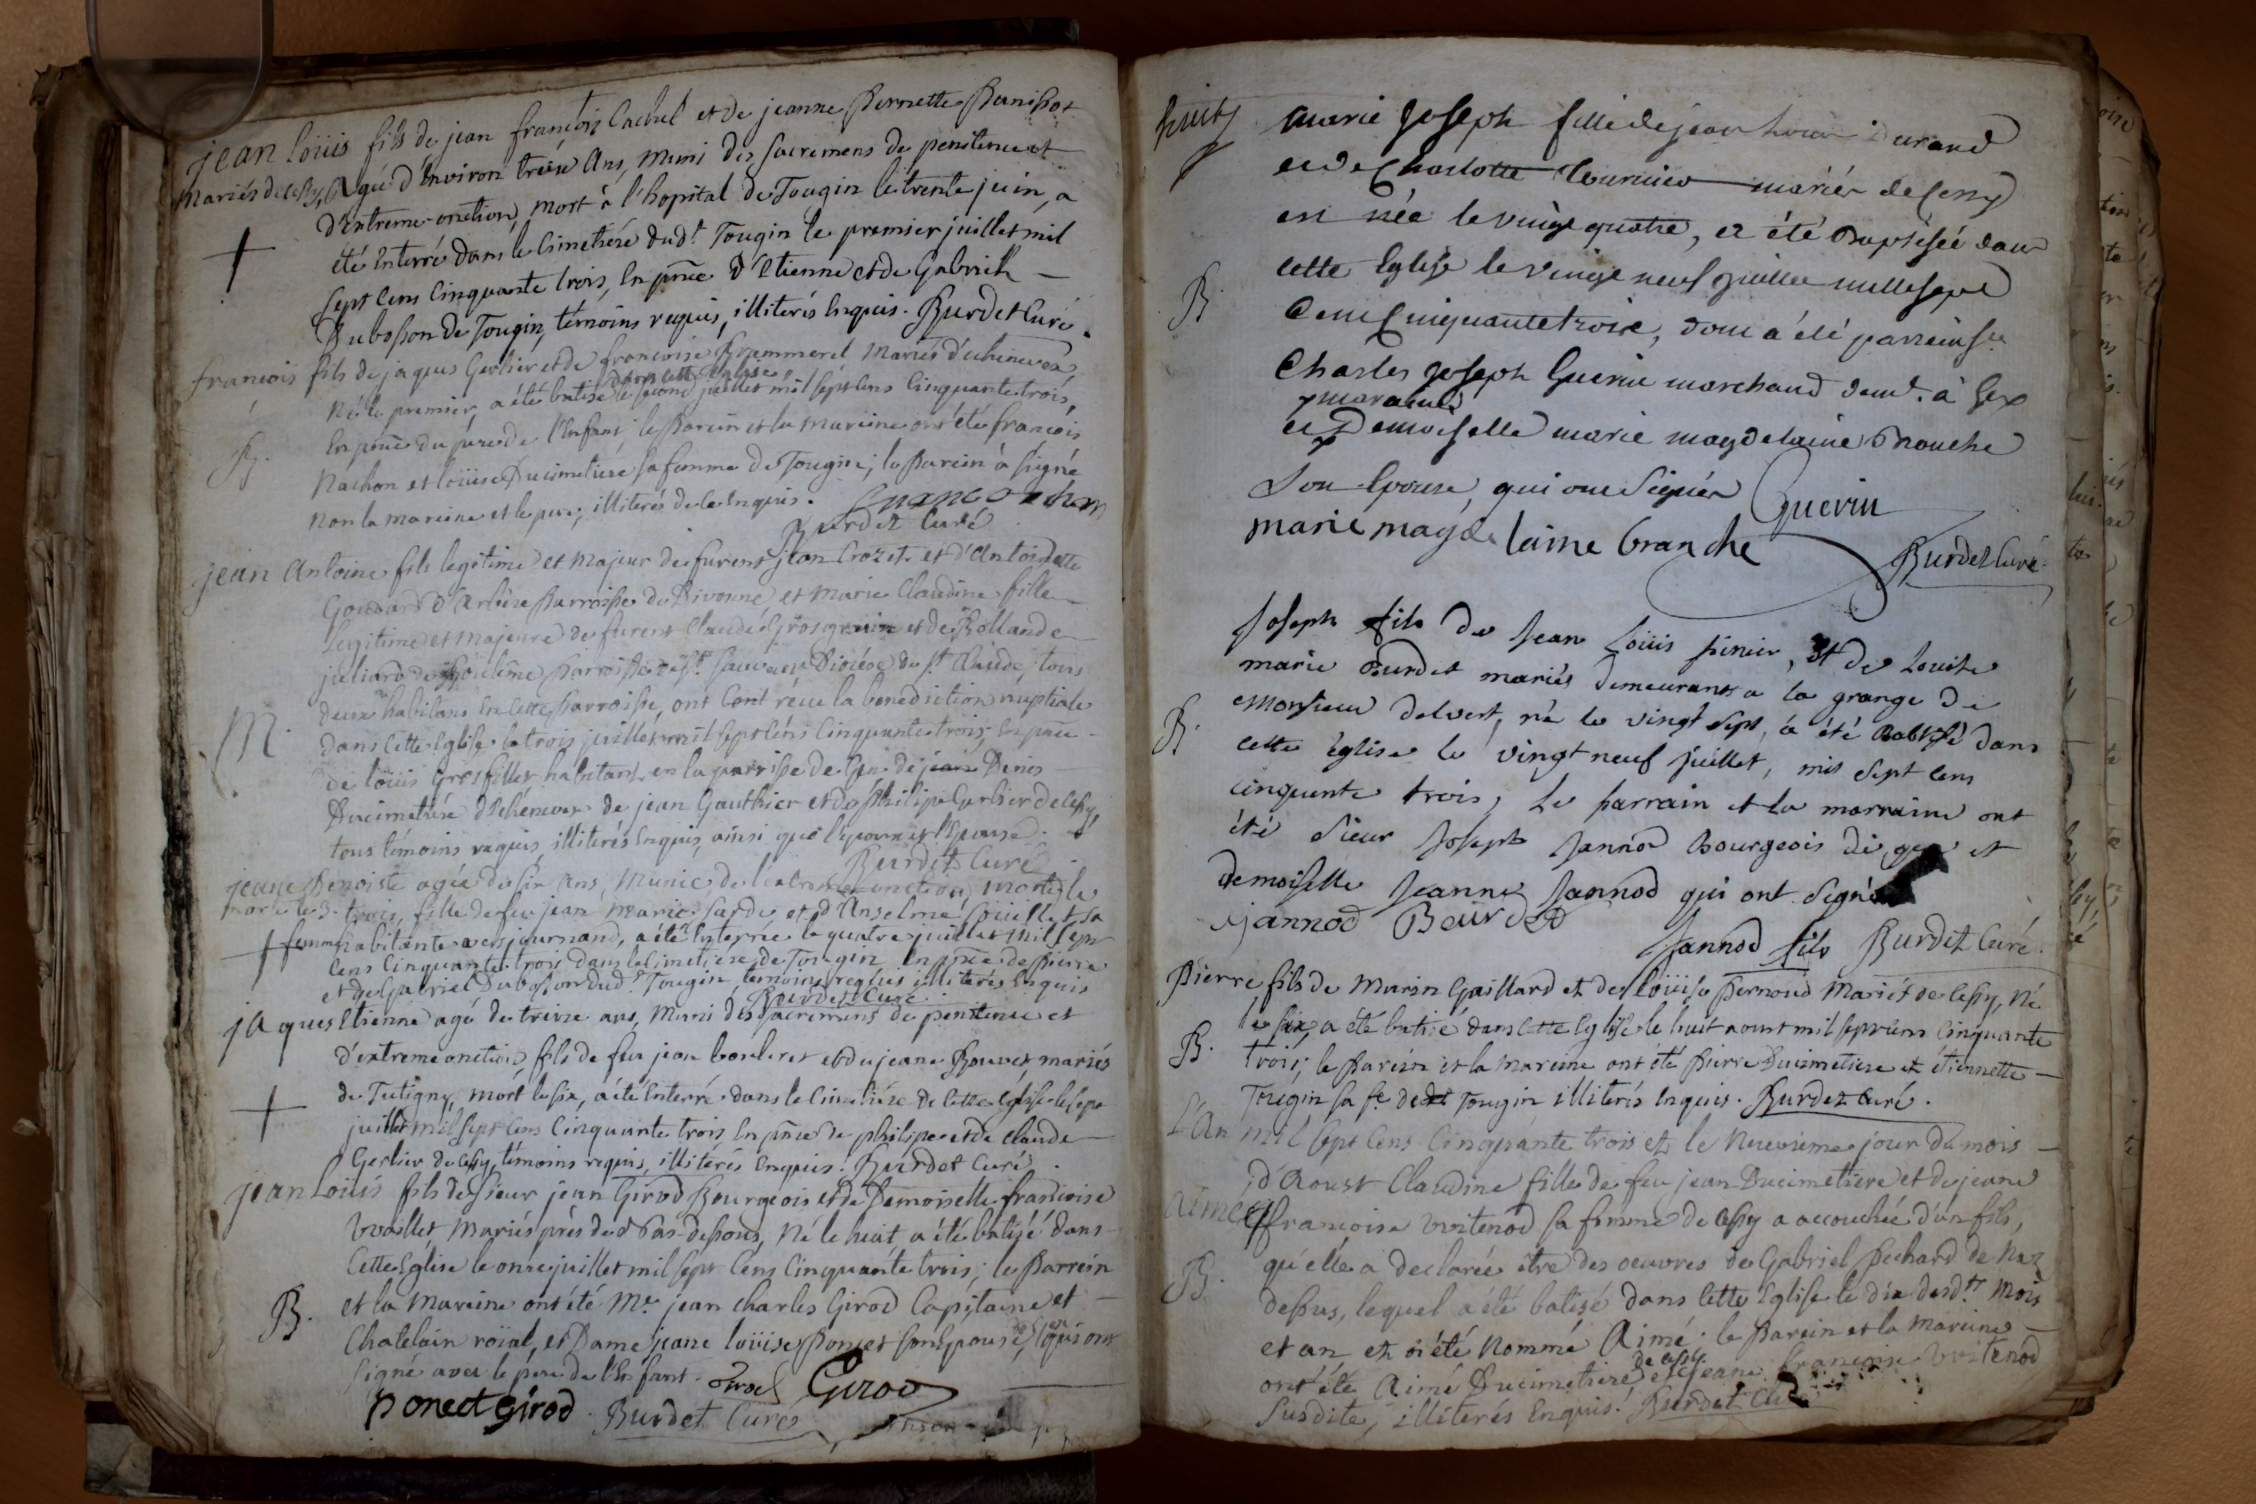 jean Loüis fils de jean françois Cachul et de jeanne Pernette
Mariés de Cessy, Agé d'Environ treise Ans, Muni des sacremens de penitence et
d'Extreme-onction, mort à l'hopital de Tougin le trente juin, a
été Enterré dans le Cimetiére dudt. Tougin le premier juillet mil
sept Cens Cinquante trois, En pñce d'Etienne et de Gabriel
Dubosson de Tougin, témoins requis, illiterés Enquis. Burdet Curé.
françois fils de jaques Gerlier et de françoise Mariés d'echenevex,
Né le premier, a été batisé dans cette Eglise le second juillet mil sept Cens Cinquante trois,
En pñce du pere de l'Enfant, le Parein et la Mareine ont été françois
B.
Nachon et loüise Ducimetiére sa femme de Tougin; le Parein a signé
Non la mareine et le pere, illiterés de ce Enquis.
Burdet Curé
jean Antoine fils legitime et Majeur de furent jean Crozet et d'Antoinette
Goudard d'Arbére Parroisse de Divonne, et Marie Claudine fille
legitime et Majeure de furent Claude Grosgurin et de Rollande
juliard de Parroisse de St. Diocése de St. Claude, tous
deux habitans En Cette Parroisse, ont Cent réçeu la benediction nuptiale
M.
dans Cette Eglise le trois juillet mil sept Cens Cinquante trois, En pñce
de loüis Grosfillet habitant en la parroisse de Gex de jean Denis
Ducimetiére d'Echenevex de jean Gauthier et de Philipe Gerlier de Cessy,
tous témoins requis, illiterés Enquis, ainsi que l'Epoux et l'Epouse.
Burdet Curé
jeane Benoiste agée de six ans, Munie de l'extreme onction, Morte le
trois, fille de feu jean Marie et d'Anselme sa
femme habitante vers journand, a été Enterrée le quatre juillet mil sept
Cens Cinquante trois dans le Cimetiere de Tougin En pñce de pierre
et de Gabriel Dubosson dudt. Tougin, temoins requis illiterés Enquis
Burdet Curé
jaques Etienne agé de treise ans, Muni des sacremens de penitence et
d'extreme onction, fils de feu jean bouleret et de jeane Bouvet, mariés
de Tutigny, mort le six, a été Enterré dans le Cimetiére de Cette Eglise le sept
juillet mil sept Cens Cinquante trois En pñce de philipe et de Claude
Gerlier de Cessy, témoins requis, illiterés Enquis. Burdet Curé.
jean Loüis fils de sieur jean Girod Bourgeois et de Demoiselle francoise
Vuaillet Mariés près de Pas-dessous, Né le huit a été batizé dans
Cette Eglise le onse juillet mil sept Cens Cinquante trois; le Parrein
et la Mareine ont été Me. jean Charles Girod Capitaine et
B.
Chatelain roïal, et Dame jeane loüise Poncet son Epouse, qui ont
signé avec le pere de l'Enfant. Girod Girod
poncet Girod. Burdet Curé
Marie Joseph fille de jean Durand
et de Charlotte Tournier mariés de Cessy
est née le vingt quatre, et été Baptisée dans
cette Eglise le vingt neuf juillet mille sept
B.
Cent Cinquante trois, dont a été parrein sr.
Charles joseph Guerin marchand demt. à Gex
marainne
et Demoiselle marie magdelaine
son Epouse, qui ont signés Guerin
marie magdelaine branche
Burdet Curé.
Joseph fils de Jean Loüis pinier, et de Louise
marie Burdet mariés demeurants a la grange de
Monsieur Delvert, né le vingt sept, a été Babtisé dans
B.
cette église le vingt neuf juillet, mil sept cens
cinquente trois; Le parrain et la marraine ont
été sieur Joseph Jannod Bourgeois de gex et
demoiselle Jeanne Jannod qui ont signé
jannod Bourdet
Jannod fils Burdet Curé.
Pierre, fils de Marin Gaillard et de Loüise Pernoud Mariés de Cessy, Né
le six, a été batisé dans cette Eglise le huit aoust mil sept Cens Cinquante
B.
trois; le Parein et la Mareine ont été Pierre Ducimetiere et étiennette
Tougin sa fe. de Tougin illiterés Enquis. Burdet Curé.
L'An mil sept Cens Cinquante trois et le Neuvieme jour du mois
d'Aoust Claudine fille de feu jean Ducimetiere et de jeane
Aimé
françoise Vuitenod sa femme de Cessy a accouchée d'un fils,
qu'elle a declarée être des oeuvres de Gabriel Pechard de Naz
B.
dessus, lequel a été batisé dans Cette Eglise le dix desdts. Mois
et an et a été Nommé Aimé. le Parein et la Mareine
ont été Aimé Ducimetiere de Cessy et jeane francoise Vuitenod
susdite, illiterés Enquis. Burdet Curé